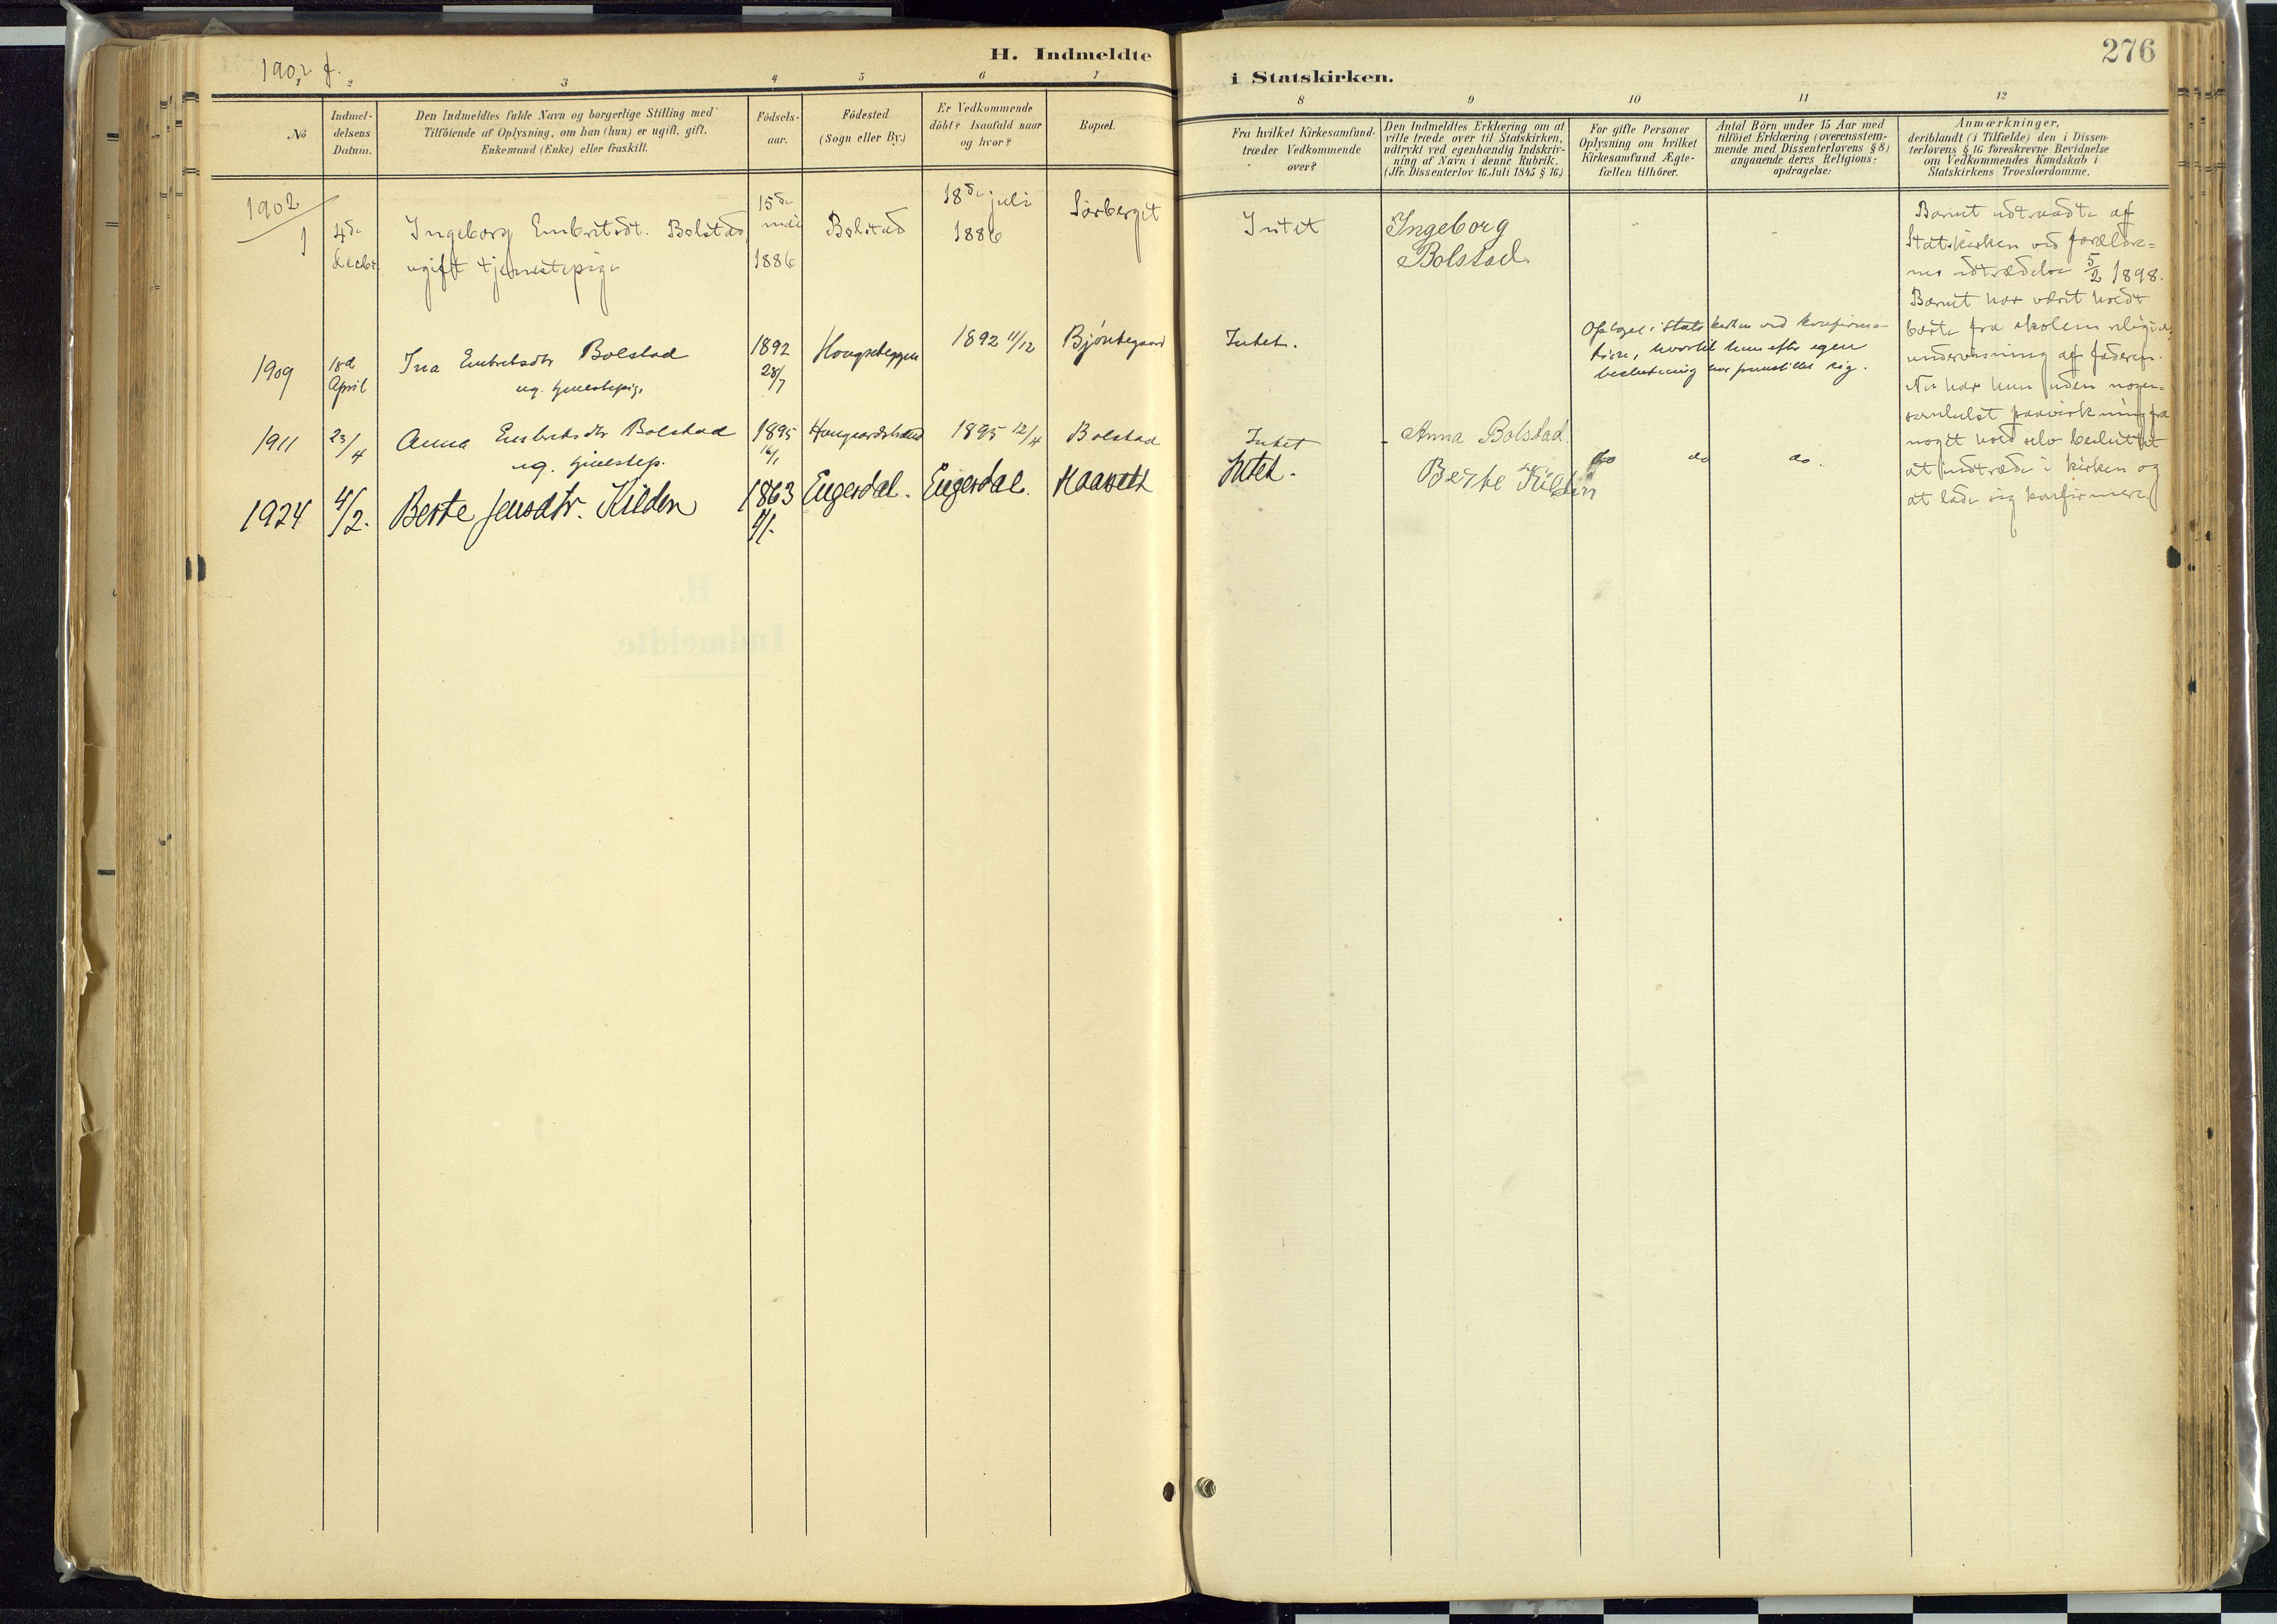 1902 f.
H. Indmeldte
i Statskirken.
276
1 2 3 4 5 6 7
8 9 10 11 12
No
Indmel-
delsens
Datum.
Den Indmeldtes fulde Navn og borgerlige Stilling med
Tilföiende af Oplysning, om han (hun) er ugift, gift,
Enkemand (Enke) eller fraskilt.
Födsels-
aar.
Födested
(Sogn eller By.)
Er Vedkommende
döbt? Isaafald naar
og hvor?
Bopæl.
Fra hvilket Kirkesamfund
træder Vedkommende
over?
Den Indmeldtes Erklæring om at
ville træde over til Statskirken,
udtrykt ved egenhændig Indskriv-
ning af Navn i denne Rubrik.
(Jfr. Dissenterlov 16 Juli 1845 § 16.)
For gifte Personer
Oplysning om hvilket
Kirkesamfund Ægte-
fællen tilhörer.
Antal Börn under 15 Aar med
tilföiet Erklæring (overensstem-
mende med Dissenterlovens § 8)
angaaende deres Religions-
opdragelse:
Anmærkninger,
deriblandt (i Tilfælde) den i Dissen-
terlovens § 16 foreskrevne Bevidnelse
om Vedkommendes Kundskab i
Statskirkens Troeslærdomme.
1902
1
4de
Decbr.
Ingeborg Embritsdt. Bolstad,
ugift tjenestepige
15de
mai
1886
Bolstad
18de juli
1886
Sørberget
Intet
Ingeborg
Bolstad
Barnet udtraadte af
Statskirken ved forældre-
nes udtrædelse 5/2 1898.
Barnet har været holdt
borte fra skolens religions
undervisning af faderen.
Nu har hun uden nogen-
somhelst paavirkning fra
noget hold selv besluttet
at indtræde i kirken og
at lade sig konfirmere.
1909
18d
April
Ina Embretsdtr Bolstad
ug. tjenestepige
1892
28/7
1892 11/12
Bjørkegaard
Intet.
Optaget i Statskirken ved konfirma-
tion, hvortil hun efter egen
beslutning har fremstillet sig.
1911
23/4
Anna Embretsdtr Bolstad
ug. tjenestep.
1895
16/1
1895 12/4
Bolstad
Intet
Anna Bolstad.
do do do.
1924
4/2.
Berte Jensdtr. Kilden
1863
4/1.
Engerdal.
Engerdal.
Intet.
Berte Kilden